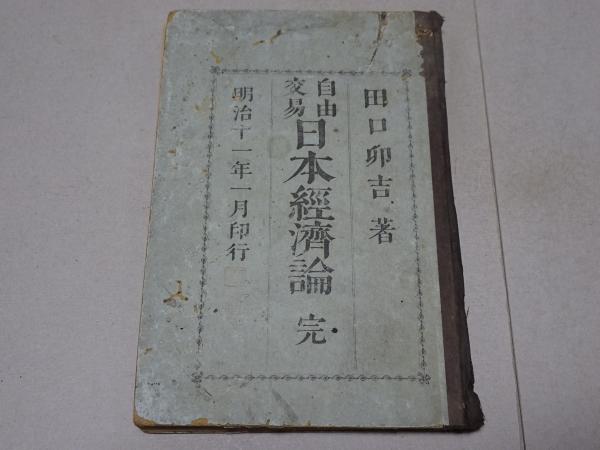 田口卯吉著
自由交易
日本經濟論 完
明治十一年一月印行